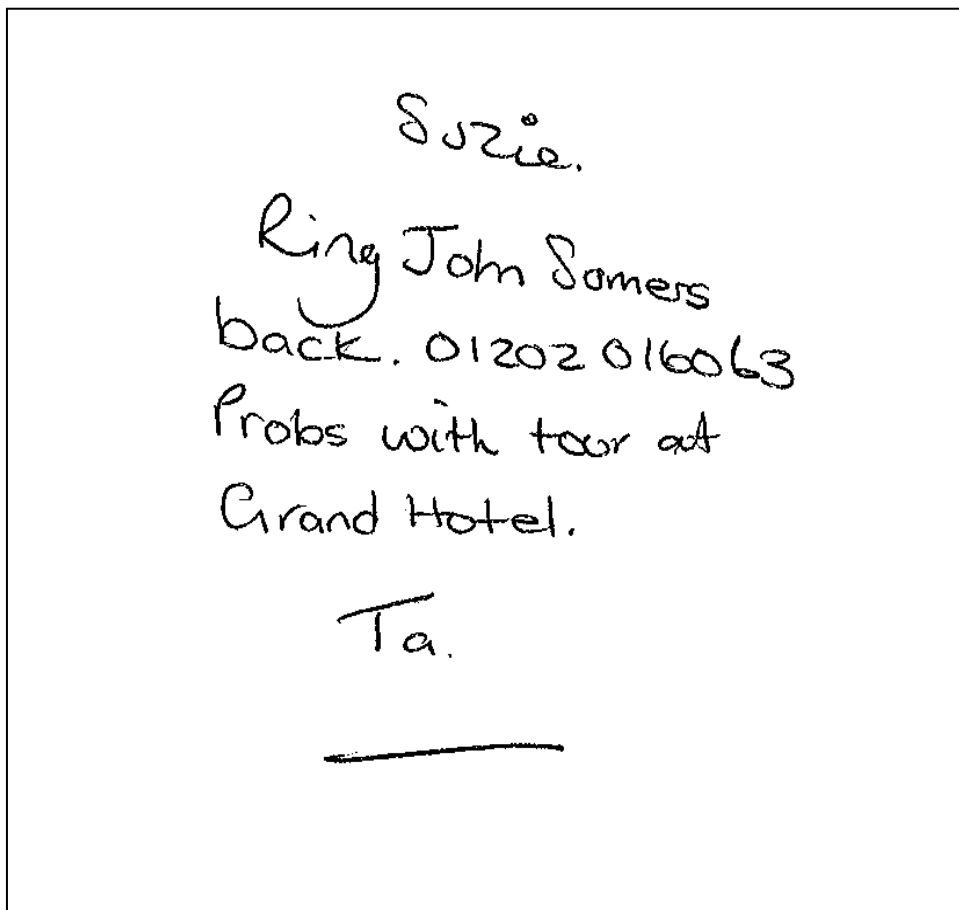 Suzie.
Ring John Somers
back. 01202 016063
Probs with tour at
Grand Hotel.
Ta.